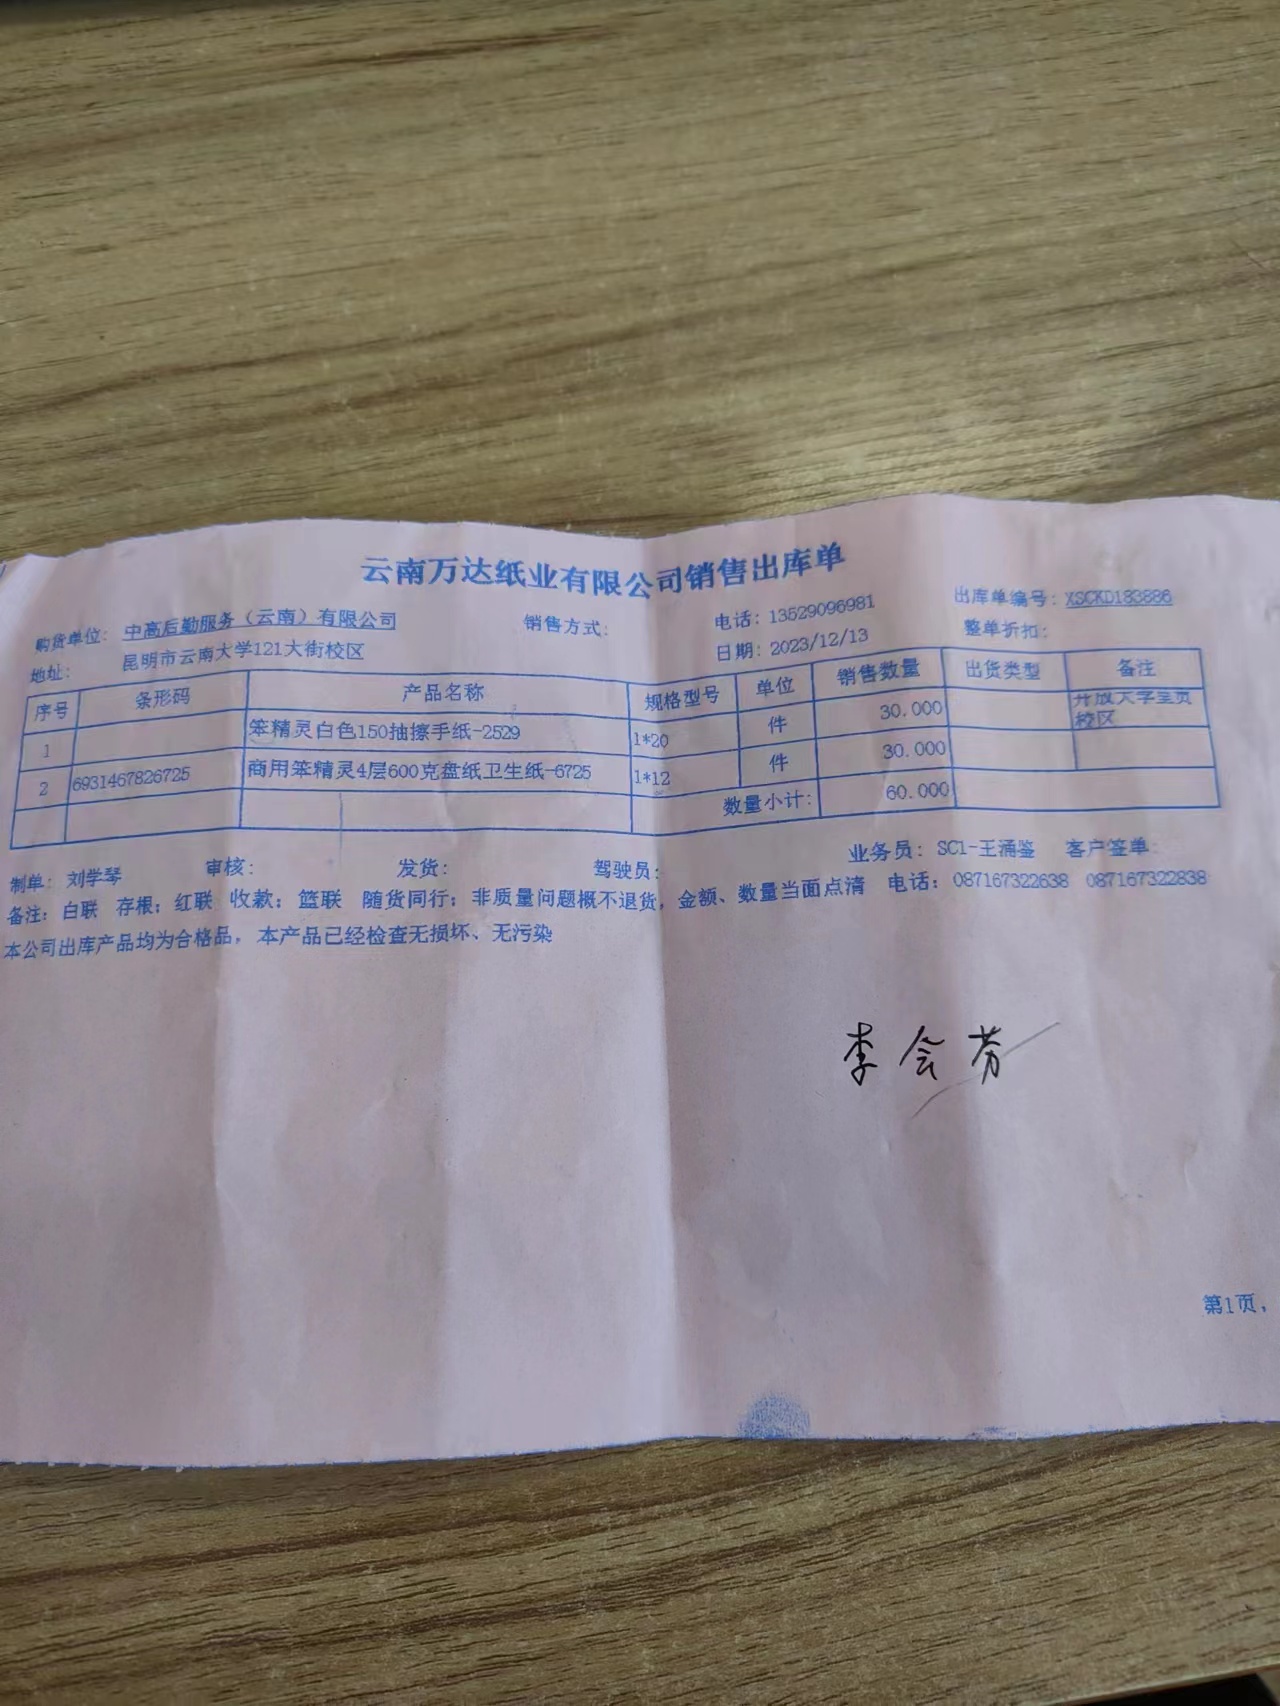 云南万达纸业有限公司销售出库单
购货单位: 中高后勤服务（云南）有限公司 销售方式: 电话: 13529096981 出库单编号: XSCKD183886
地址: 昆明市云南大学121大街校区 日期: 2023/12/13 整单折扣:
序号 条形码 产品名称 规格型号 单位 销售数量 出货类型 备注
1 笨精灵白色150抽擦手纸-2529 1*20 件 30.000 开放大学呈贡
校区
2 6931467826725 商用笨精灵4层600克盘纸卫生纸-6725 1*12 件 30.000
数量小计: 60.000
制单: 刘学琴 审核: 发货: 驾驶员: 业务员: SC1-王涌鉴 客户签单:
备注: 白联 存根; 红联 收款; 篮联 随货同行; 非质量问题概不退货, 金额、数量当面点清 电话: 087167322638 087167322838
本公司出库产品均为合格品, 本产品已经检查无损坏、无污染
李会芳
第1页,